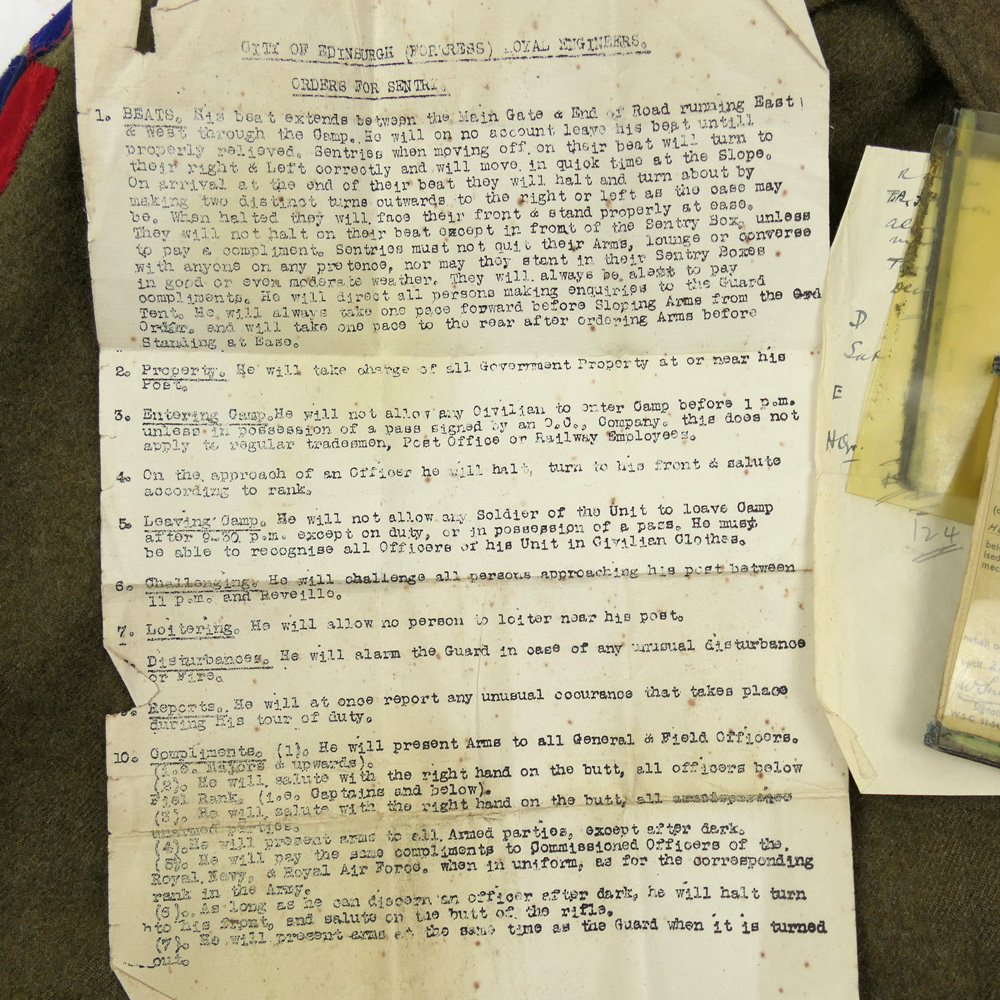 CITY OF EDINBURGH (FORTRESS) ROYAL ENGINEERS.
ORDERS FOR SENTRY.
1. BEATS. His beat extends between the Main Gate & End of Road running East
& west through the Camp. He will on no account leave his beat untill
properly relieved. Sentries when moving off on their beat will turn to
their right & Left correctly and will move in quick time at the Slope.
On arrival at the end of their beat they will halt and turn about by
making two distinct turns outwards to the right or left as the case may
be. When halted they will face their front & stand properly at ease.
They will not halt on their beat except in front of the Sentry Box, unless
to pay a compliment. Sentries must not quit their Arms, lounge or converse
with anyone on any pretence, nor may they stant in their Sentry Boxes
in good or even moderate weather. They will always be alert to pay
compliments. He will direct all persons making enquiries to the Guard
Tent. He will always take one pace forward before Sloping Arms from the
Order. and will take one pace to the rear after ordering Arms before
Standing at Ease.
2. Property. He will take charge of all Government Property at or near his
Post.
3. Entering Camp. He will not allow any Civilian to enter Camp before 1 p.m.
unless in possession of a pass signed by an O.C., Company. this does not
apply to regular tradesmen, Post Office or Railway Employees.
4. On the approach of an Officer he will halt, turn to his front & salute
according to rank.
5. Leaving Camp. He will not allow any Soldier of the Unit to leave Camp
after 9.30 p.m. except on duty, or in possession of a pass. He must
be able to recognise all Officers of his Unit in Civilian Clothes.
6. Challenging. He will challenge all persons approaching his post between
11 p.m. and Reveille.
7. Loitering. He will allow no person to loiter near his post.
Disturbances. He will alarm the Guard in case of any unusual disturbance
or Fire.
Reports. He will at once report any unusual occurance that takes place
during His tour of duty.
10. Compliments. (1). He will present Arms to all General & Field Officers.
(i.e. Mayors & upwards).
(2). He will salute with the right hand on the butt, all officers below
Fiel Rank. (i.e. Captains and below).
(3). He will salute with the right hand on the butt, all
unarmed parties.
(4). He will present arms to all Armed parties, except after dark.
(5). He will pay the same compliments to Commissioned Officers of the
Royal Navy, & Royal Air Force. when in uniform, as for the corresponding
rank in the Army.
(6). As long as he can discern an officer after dark, he will halt turn
to his front, and salute on the butt of the rifle.
(7). He will present arms at the same time as the Guard when it is turned
out.
R
D
Sat
E
124
which
Signa
W.S.C.